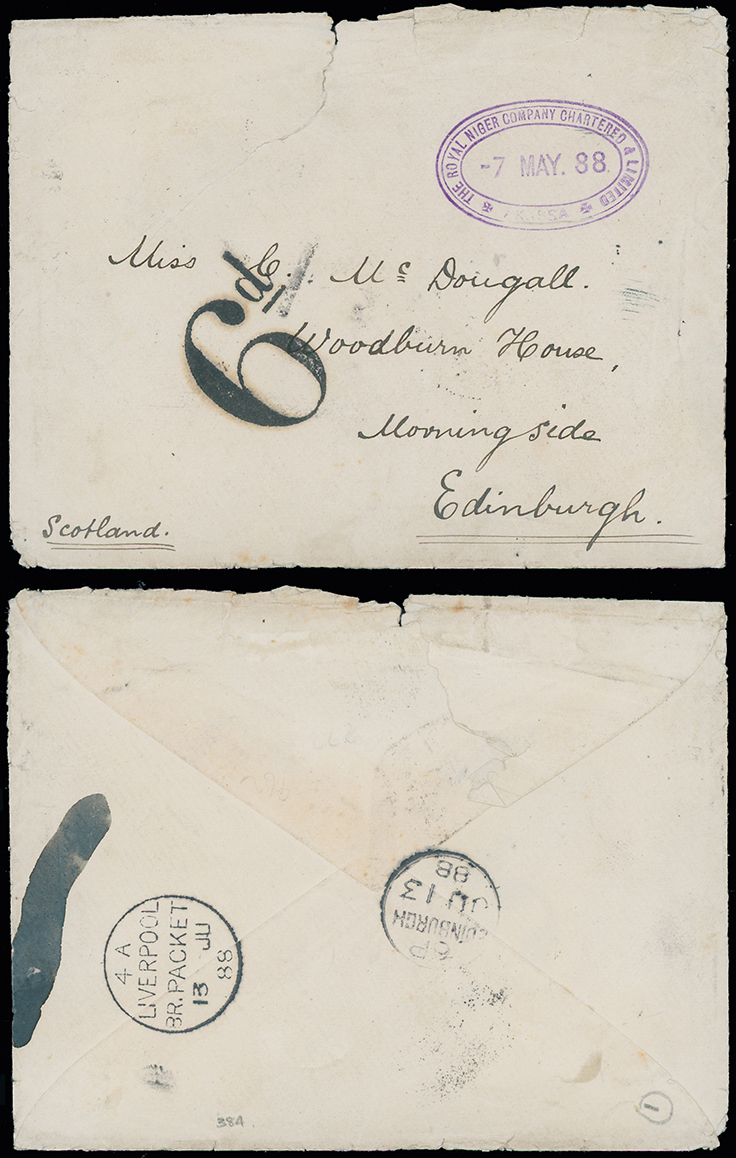 THE ROYAL NIGER COMPANY CHARTERED & LIMITED
-7 MAY. 88.
AKASSA
Miss C. Mc Dougall.
6d
Woodburn House,
Morningside
Edinburgh.
Scotland.
4 A
LIVERPOOL
BR. PACKET
13 JU
88
6P
EDINBURGH
JU 13
88
384
1